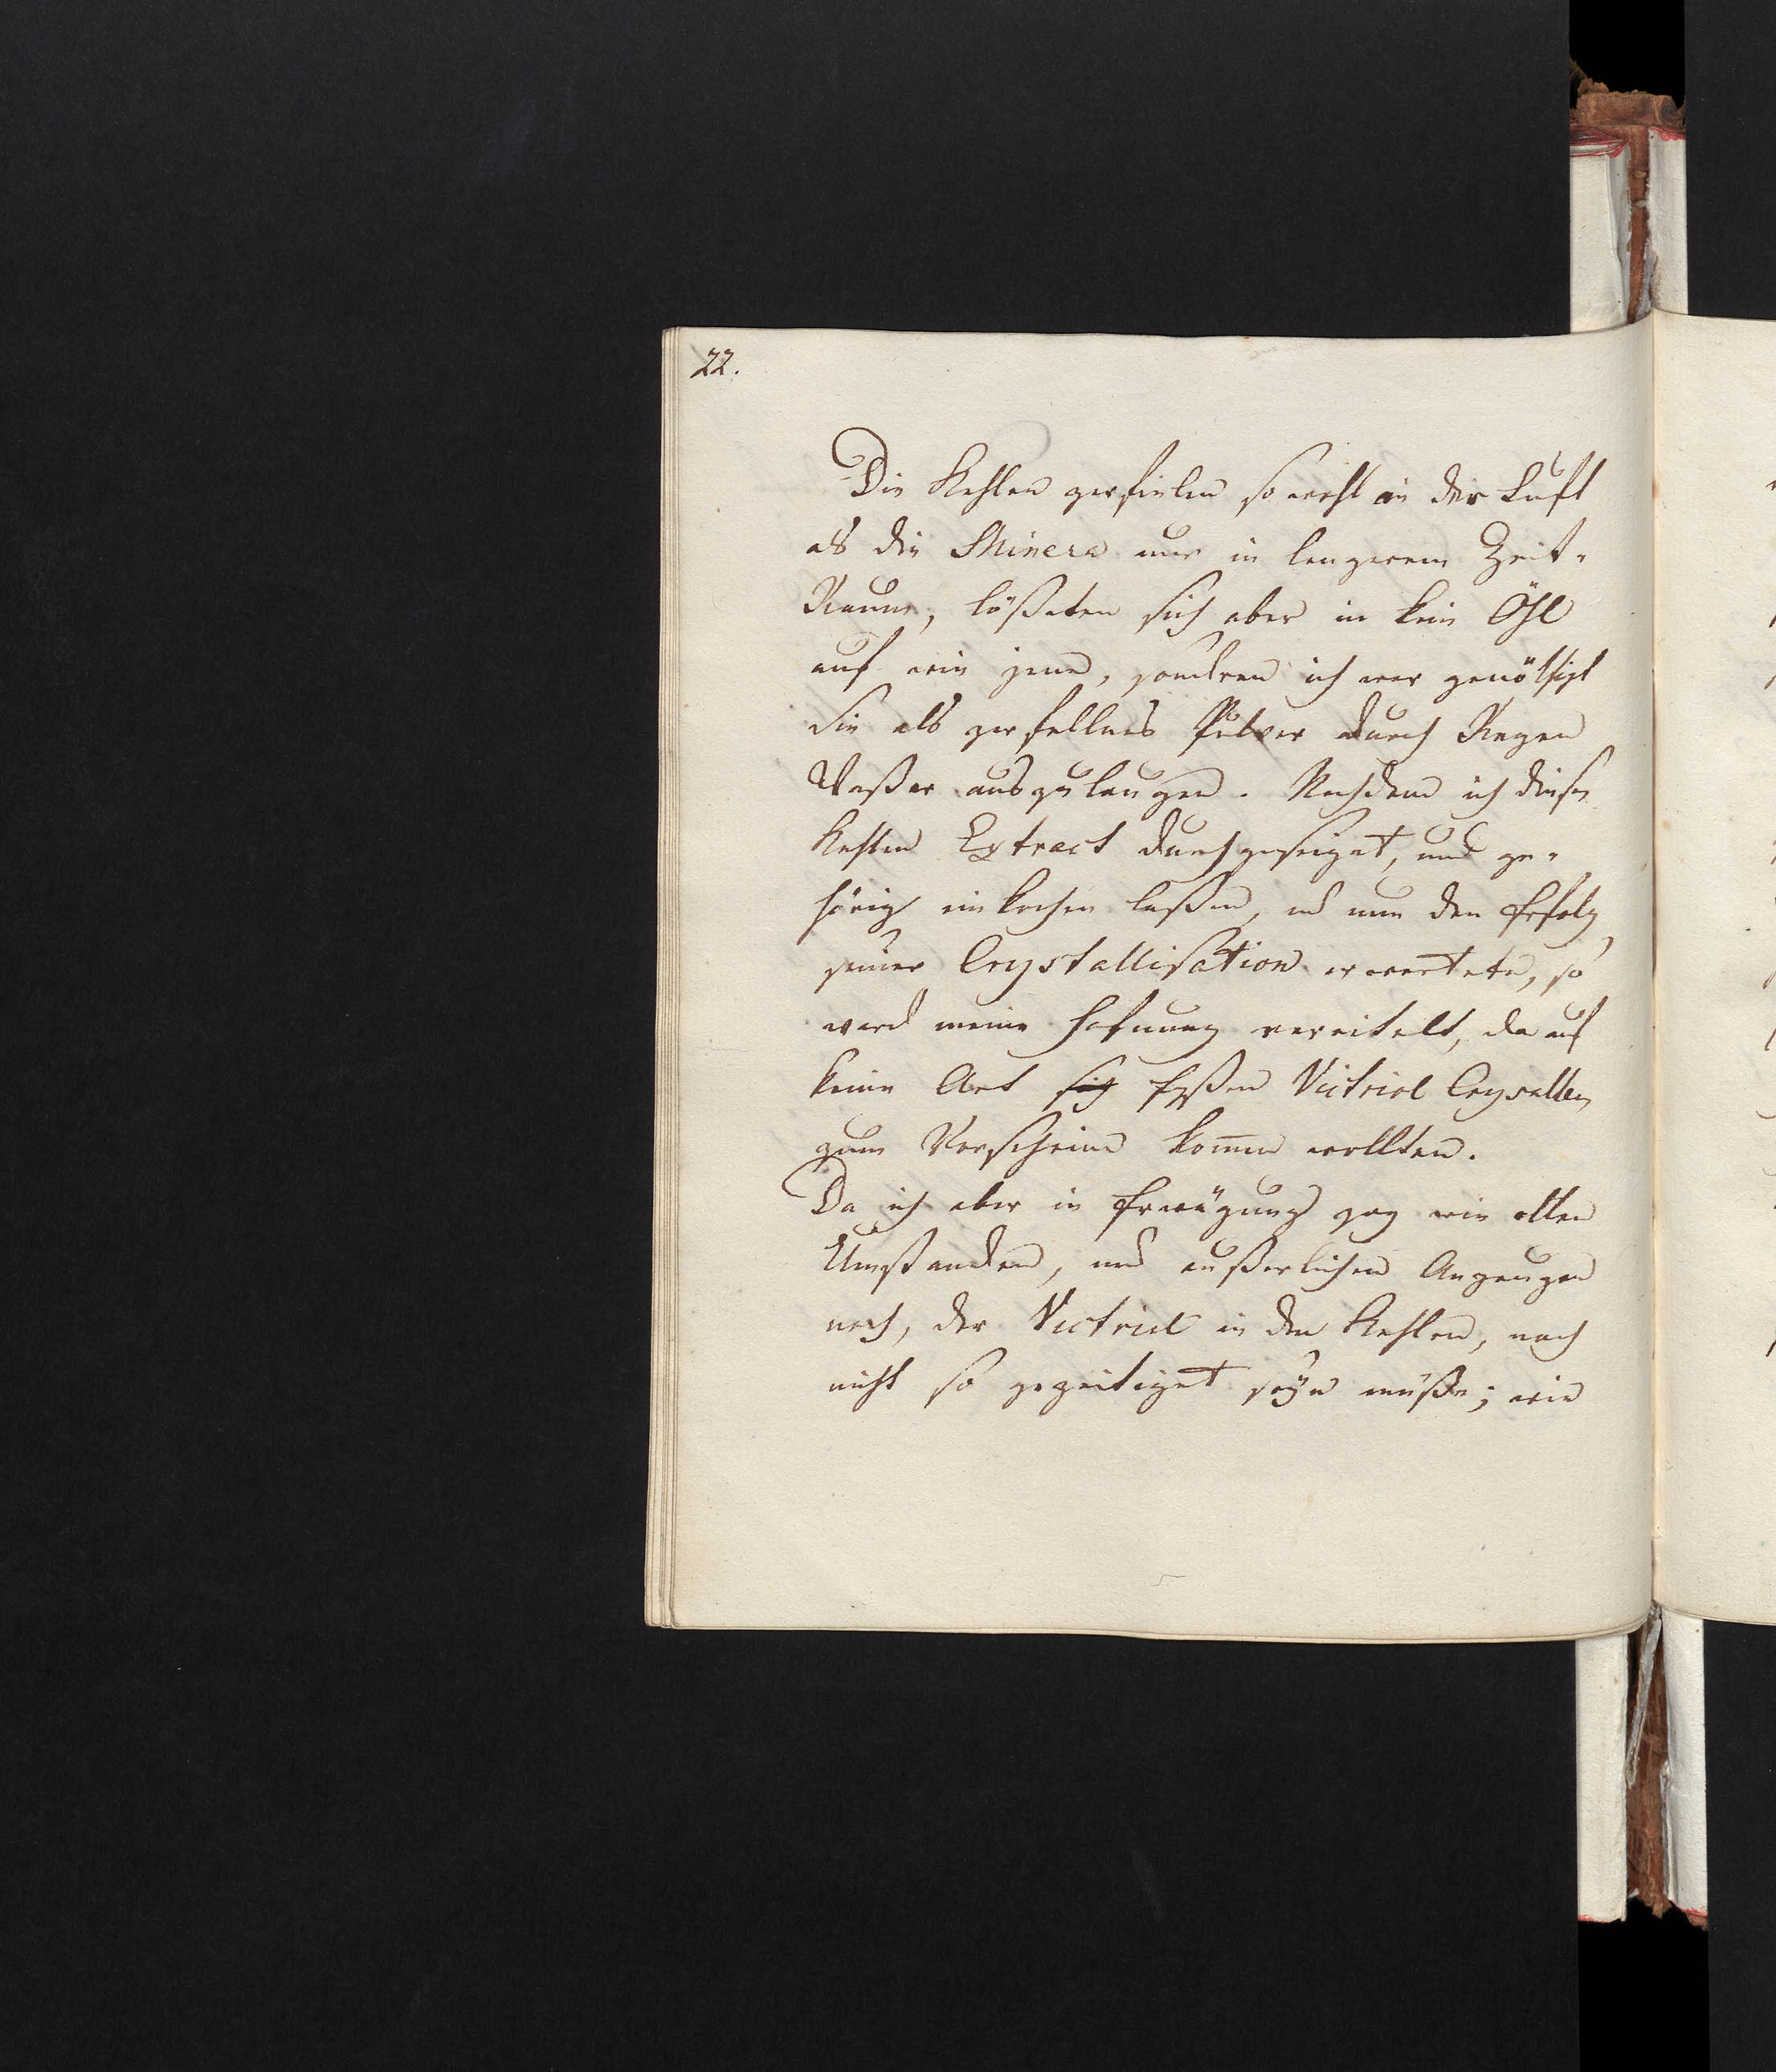 22.
Die Kohlen zerfielen so wohl in der Luft
als die Minera nur in langerem Zeit-
Raum, lößeten sich aber in kein Öhl
auf wie jene, sondren ich war genöthigt
sie als zerfallnes Pulver durch Regen
Waßer auszulaugen. Nachdem ich dieses
Kohlen Extract durchgeseiget, und ge-
hörig einkochen laßen, und nun den Erfolg
seiner Crystallisation erwartete, so
ward meine Hofnung vereitelt, da auf
keine Art sich Eyßen Victriol Crysallen
zum Vorschein kom̄en wollten.
Da ich aber in Erwägung zog wie allen
Umstanden, und außerlichen Anzeugen
nach, der Victriol in den Kohlen, noch
nicht so gezeitiget seÿn müße; wie